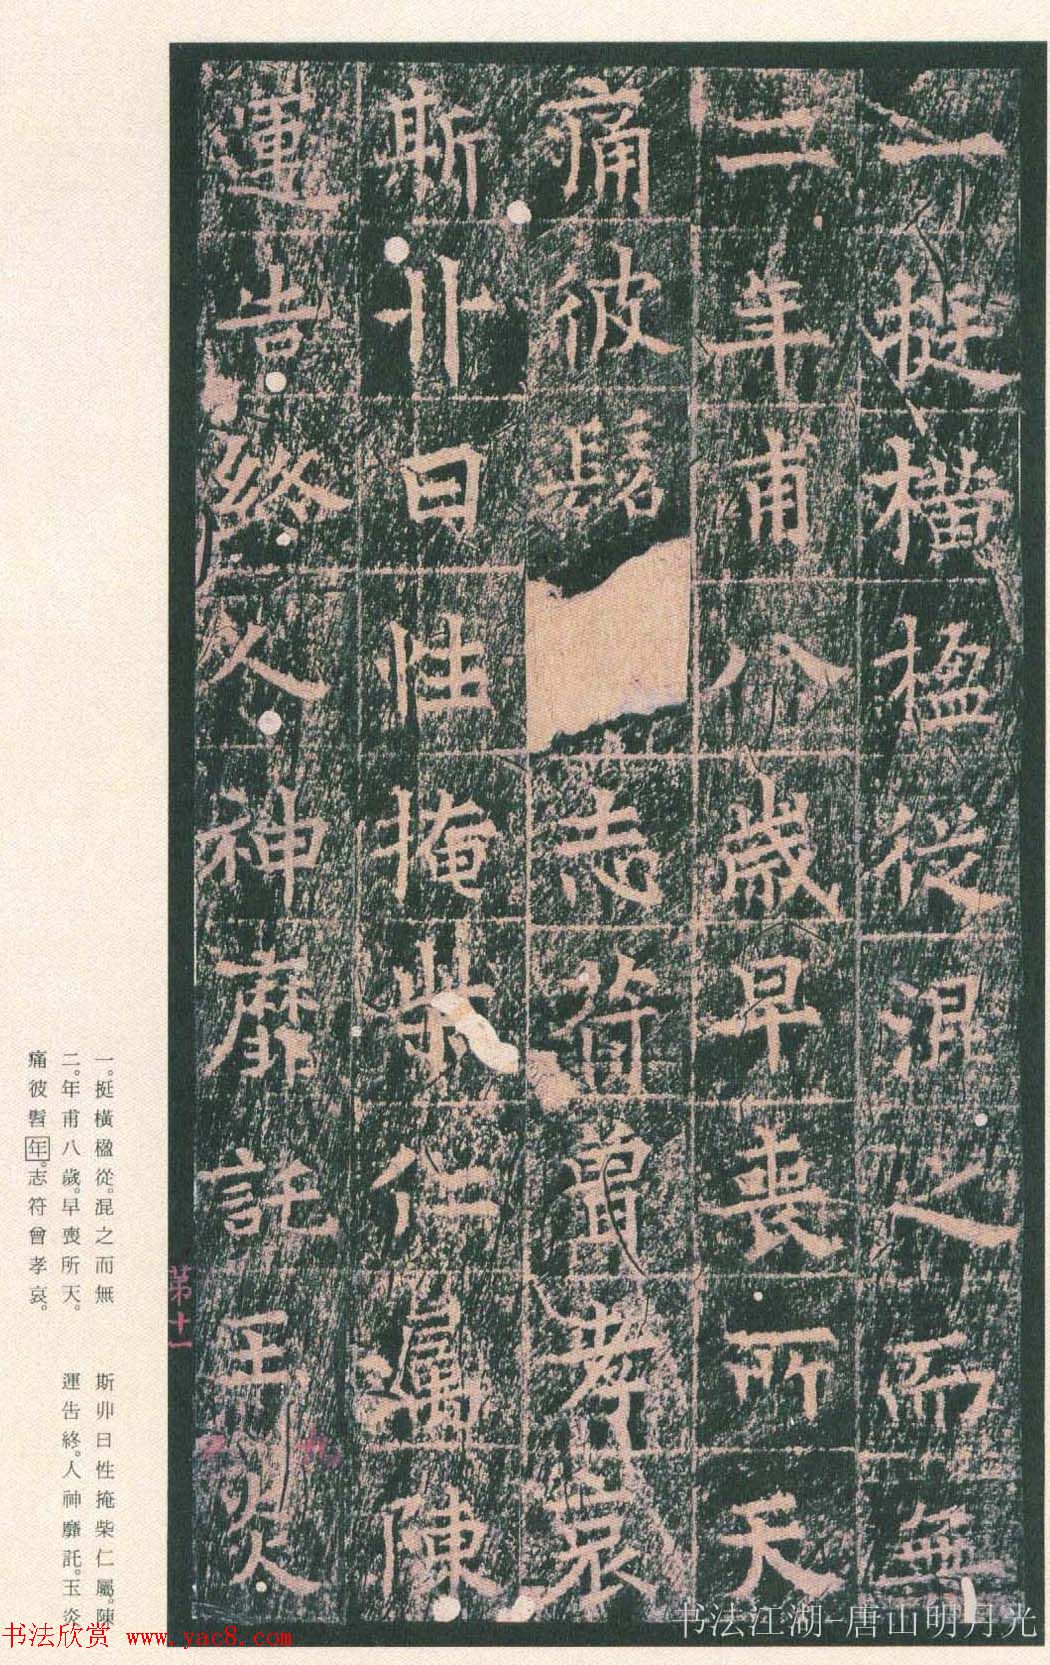 一挺橫楹從混之而無
二年甫八歲早喪所天
痛彼髫志符曾孝哀
斯卯日性掩柴仁屬陳
運告終人神靡託玉炎
一。挺橫楹從。混之而無
二。年甫八歲。早喪所天。
痛彼髫年。志符曾孝哀。
斯卯日性掩柴仁屬。陳
運告終。人神靡託。玉炎
第十一
书法欣赏 www.yac8.com
书法江湖-唐山明月光